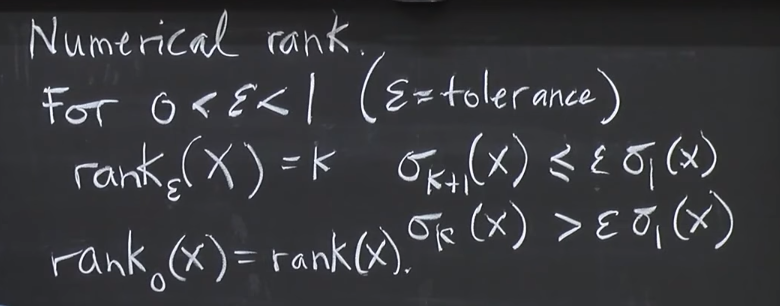 Numerical rank.
For 0 < ε < 1 (ε = tolerance)
rank_ε(X) = k   σ_{k+1}(X) ≤ ε σ_1(X)
σ_k(X) > ε σ_1(X)
rank_0(X) = rank(X).